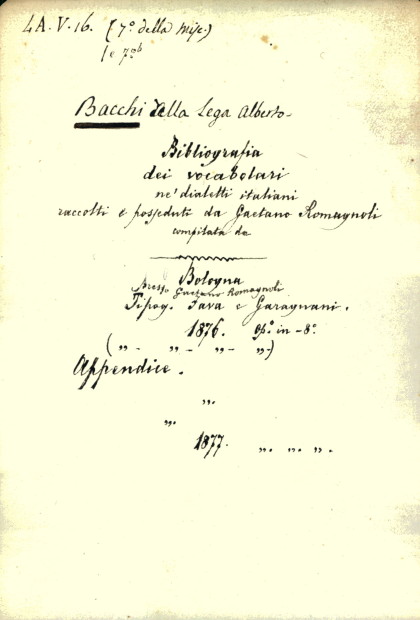 4A.V.16. (7º della Misc.)
1 e 7ºᵇ
Bacchi della Lega Alberto-
Bibliografia
dei vocabolari
ne' dialetti italiani
raccolti e posseduti da Gaetano Romagnoli
compilata da
Bologna
presso Gaetano Romagnoli
Tipog. Fava e Garagnani.
1876. opº. in-8º.
( „ - „ - „ - „ )
Appendice.
„.
„.
1877. „. „. „.